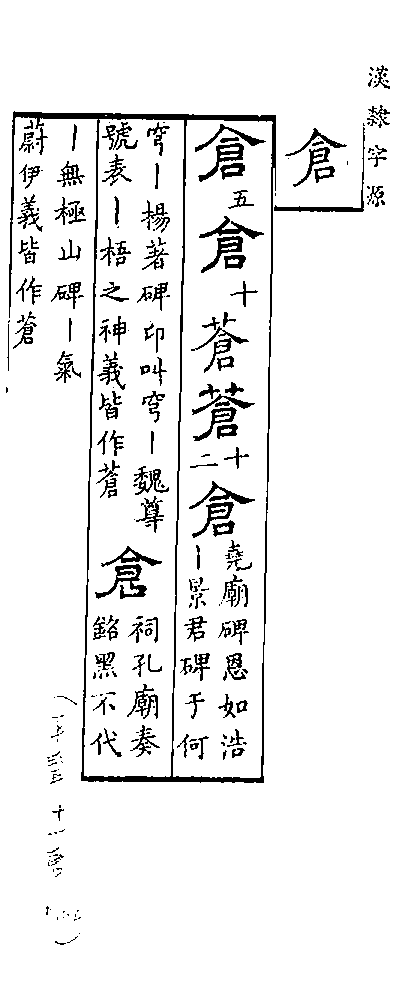 漢隸字源
倉
倉五倉十蒼蒼十二倉堯廟碑恩如浩丨景君碑于何
穹丨楊著碑卬叫穹丨魏尊號表丨梧之神義皆作蒼倉祠孔廟奏銘黑不代
丨無極山碑丨氣
蔚伊義皆作蒼